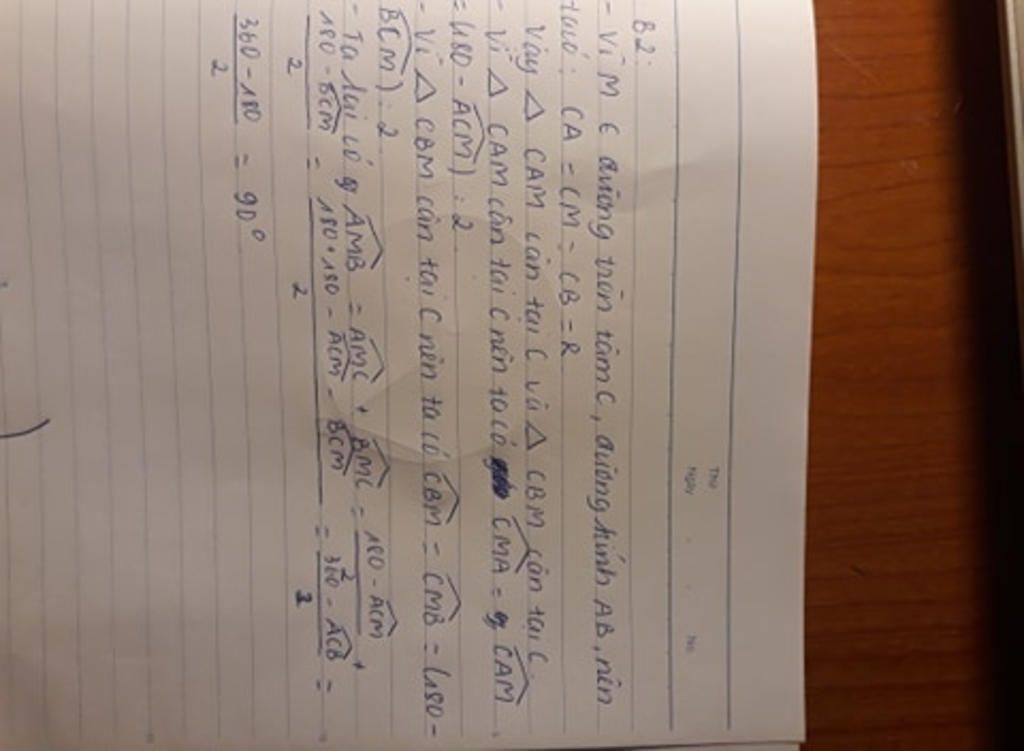 Thứ
Ngày . . No.
B2:
- Vì M ∈ đường tròn tâm C, đường kính AB, nên
ta có: CA = CM = CB = R
Vậy △ CAM cân tại C và △ CBM cân tại C.
- Vì △ CAM cân tại C nên ta có CMA = CAM
= (180 - ACM) : 2
- Vì △ CBM cân tại C nên ta có CBM = CMB = (180 -
BCM) : 2
- Ta lại có AMB = AMC + BMC = (180 - ACM)/2 +
(180 - BCM)/2 = (180 + 180 - ACM - BCM)/2 = (360 - ACB)/2 =
(360 - 180)/2 = 90°